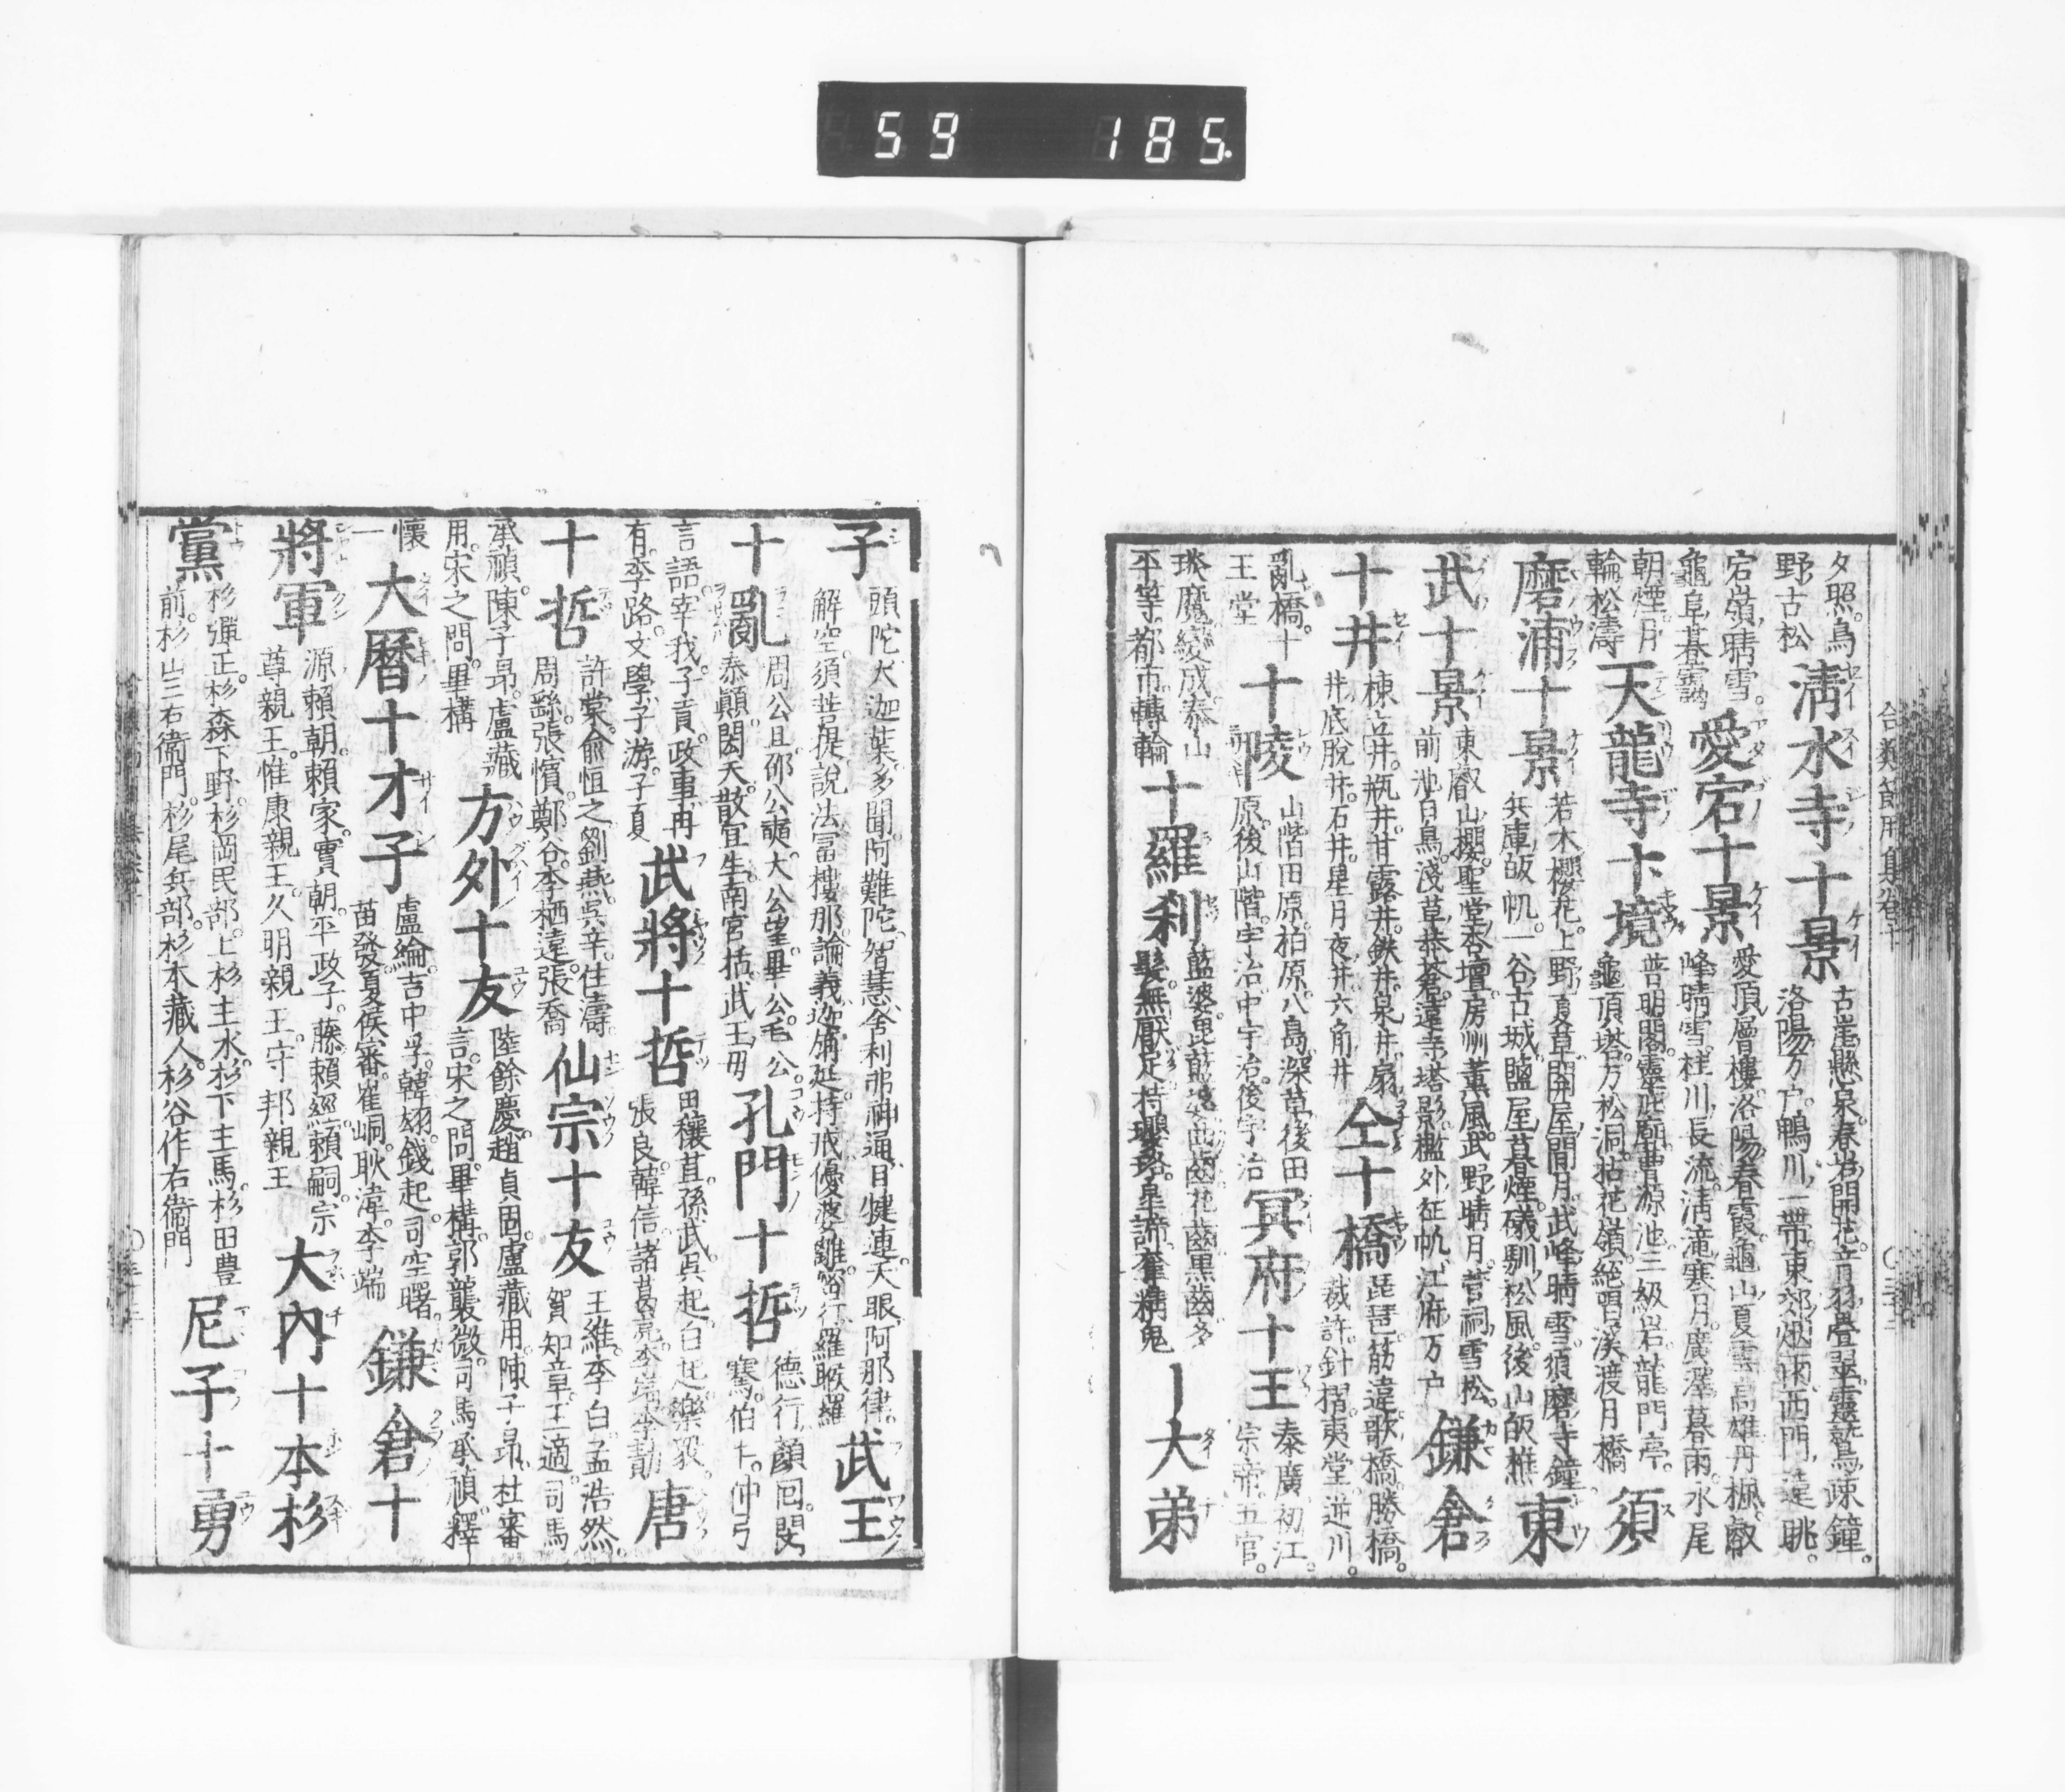 59 185
夕照。烏
野古松
清水寺十景
古崖懸泉。春岩開花。音羽疊翠。靈鷲疎鐘。
洛陽万戸。鴨川一帶。東郊烟雨。西門遠眺。
宕嶺晴雪。
龜阜暮靄
愛宕十景
愛頂層樓。洛陽春霞。龜山夏雲。高雄丹楓。叡
峰晴雪。桂川長流。清滝寒月。廣澤暮雨。水尾
朝煙。月
輪松濤
天龍寺十境
普明閣。靈庇廟。曹源池。三級岩。龍門亭。
龜頂塔。万松洞。拈花嶺。絕唱溪。渡月橋
須
磨浦十景
若木櫻花。上野夏草。關屋間月。武峰晴雪。須磨寺鐘。
兵庫皈帆。一谷古城。鹽屋暮煙。礒馴松風。後山皈樵
東
武十景
東叡山櫻。聖堂杏壇。房洲薫風。武野晴月。菅祠雪松。
前池白鳥。淺草。遠寺塔影。檻外征帆。江府万戸
鎌倉
十井
棟立井。瓶井。甘露井。鉄井。泉井。扇
井。底脫井。石井。星月夜井。六角井
仝十橋
琵琶。筋違。歌橋。勝橋。
裁許。針摺。夷堂。逆川。
亂橋。十
王堂
十陵
山階。田原。柏原。八島。深草。後田
原。後山階。宇治。中宇治。後宇治
冥府十王
秦廣。初江。
宗帝。五官。
琰魔。變成。泰山
平等。都市。轉輪
十羅刹
藍婆。毘藍婆。曲齒。花齒。黒齒。多
髮。無厭足。持瓔珞。皐諦。奪精鬼
｜大弟
合類節用集卷十
子
頭陀大迦葉。多聞阿難陀。智慧舍利弗。神通目犍連。天眼阿那律。
解空須菩提。說法富樓那。論義迦旃延。持戒優波離。密行羅睺羅
武王
十亂
周公旦。邵公奭。大公望。畢公。毛公。
泰顛。閎夭。散宜生。南宮括。武王毋
孔門十哲
德行顏回。閔
騫。伯牛。仲弓
言語宰我。子貢。政事冉
有。季路。文學子游。子夏
武將十哲
田穰苴。孫武。呉起。白起。樂毅。
張良。韓信。諸葛亮。李靖。李勣
唐
十哲
許棠。俞恒之。劉燕。呉辛。任濤。
周繇。張懭。鄭谷。李栖遠。張喬
仙宗十友
王維。李白。孟浩然。
賀知章。王適。司馬
承禎。陳子昻。盧藏
用。宋之問。畢構
方外十友
陸餘慶。趙貞固。盧藏用。陳子昻。杜審
言。宋之問。畢構。郭襲微。司馬承禎。釋
懷
一
大曆十才子
盧綸。吉中孚。韓翃。錢起。司空曙。
苗發。夏侯審。崔峒。耿湋。李端
鎌倉十
將軍
源賴朝。賴家。實朝。平政子。藤賴經。賴嗣。宗
尊親王。惟康親王。久明親王。守邦親王
大內十本杉
黨
杉彈正。杉森下野。杉岡民部。上杉主水。杉下主馬。杉田豊
前。杉山三右衛門。杉尾兵部。杉本藏人。杉谷作右衛門
尼子十勇